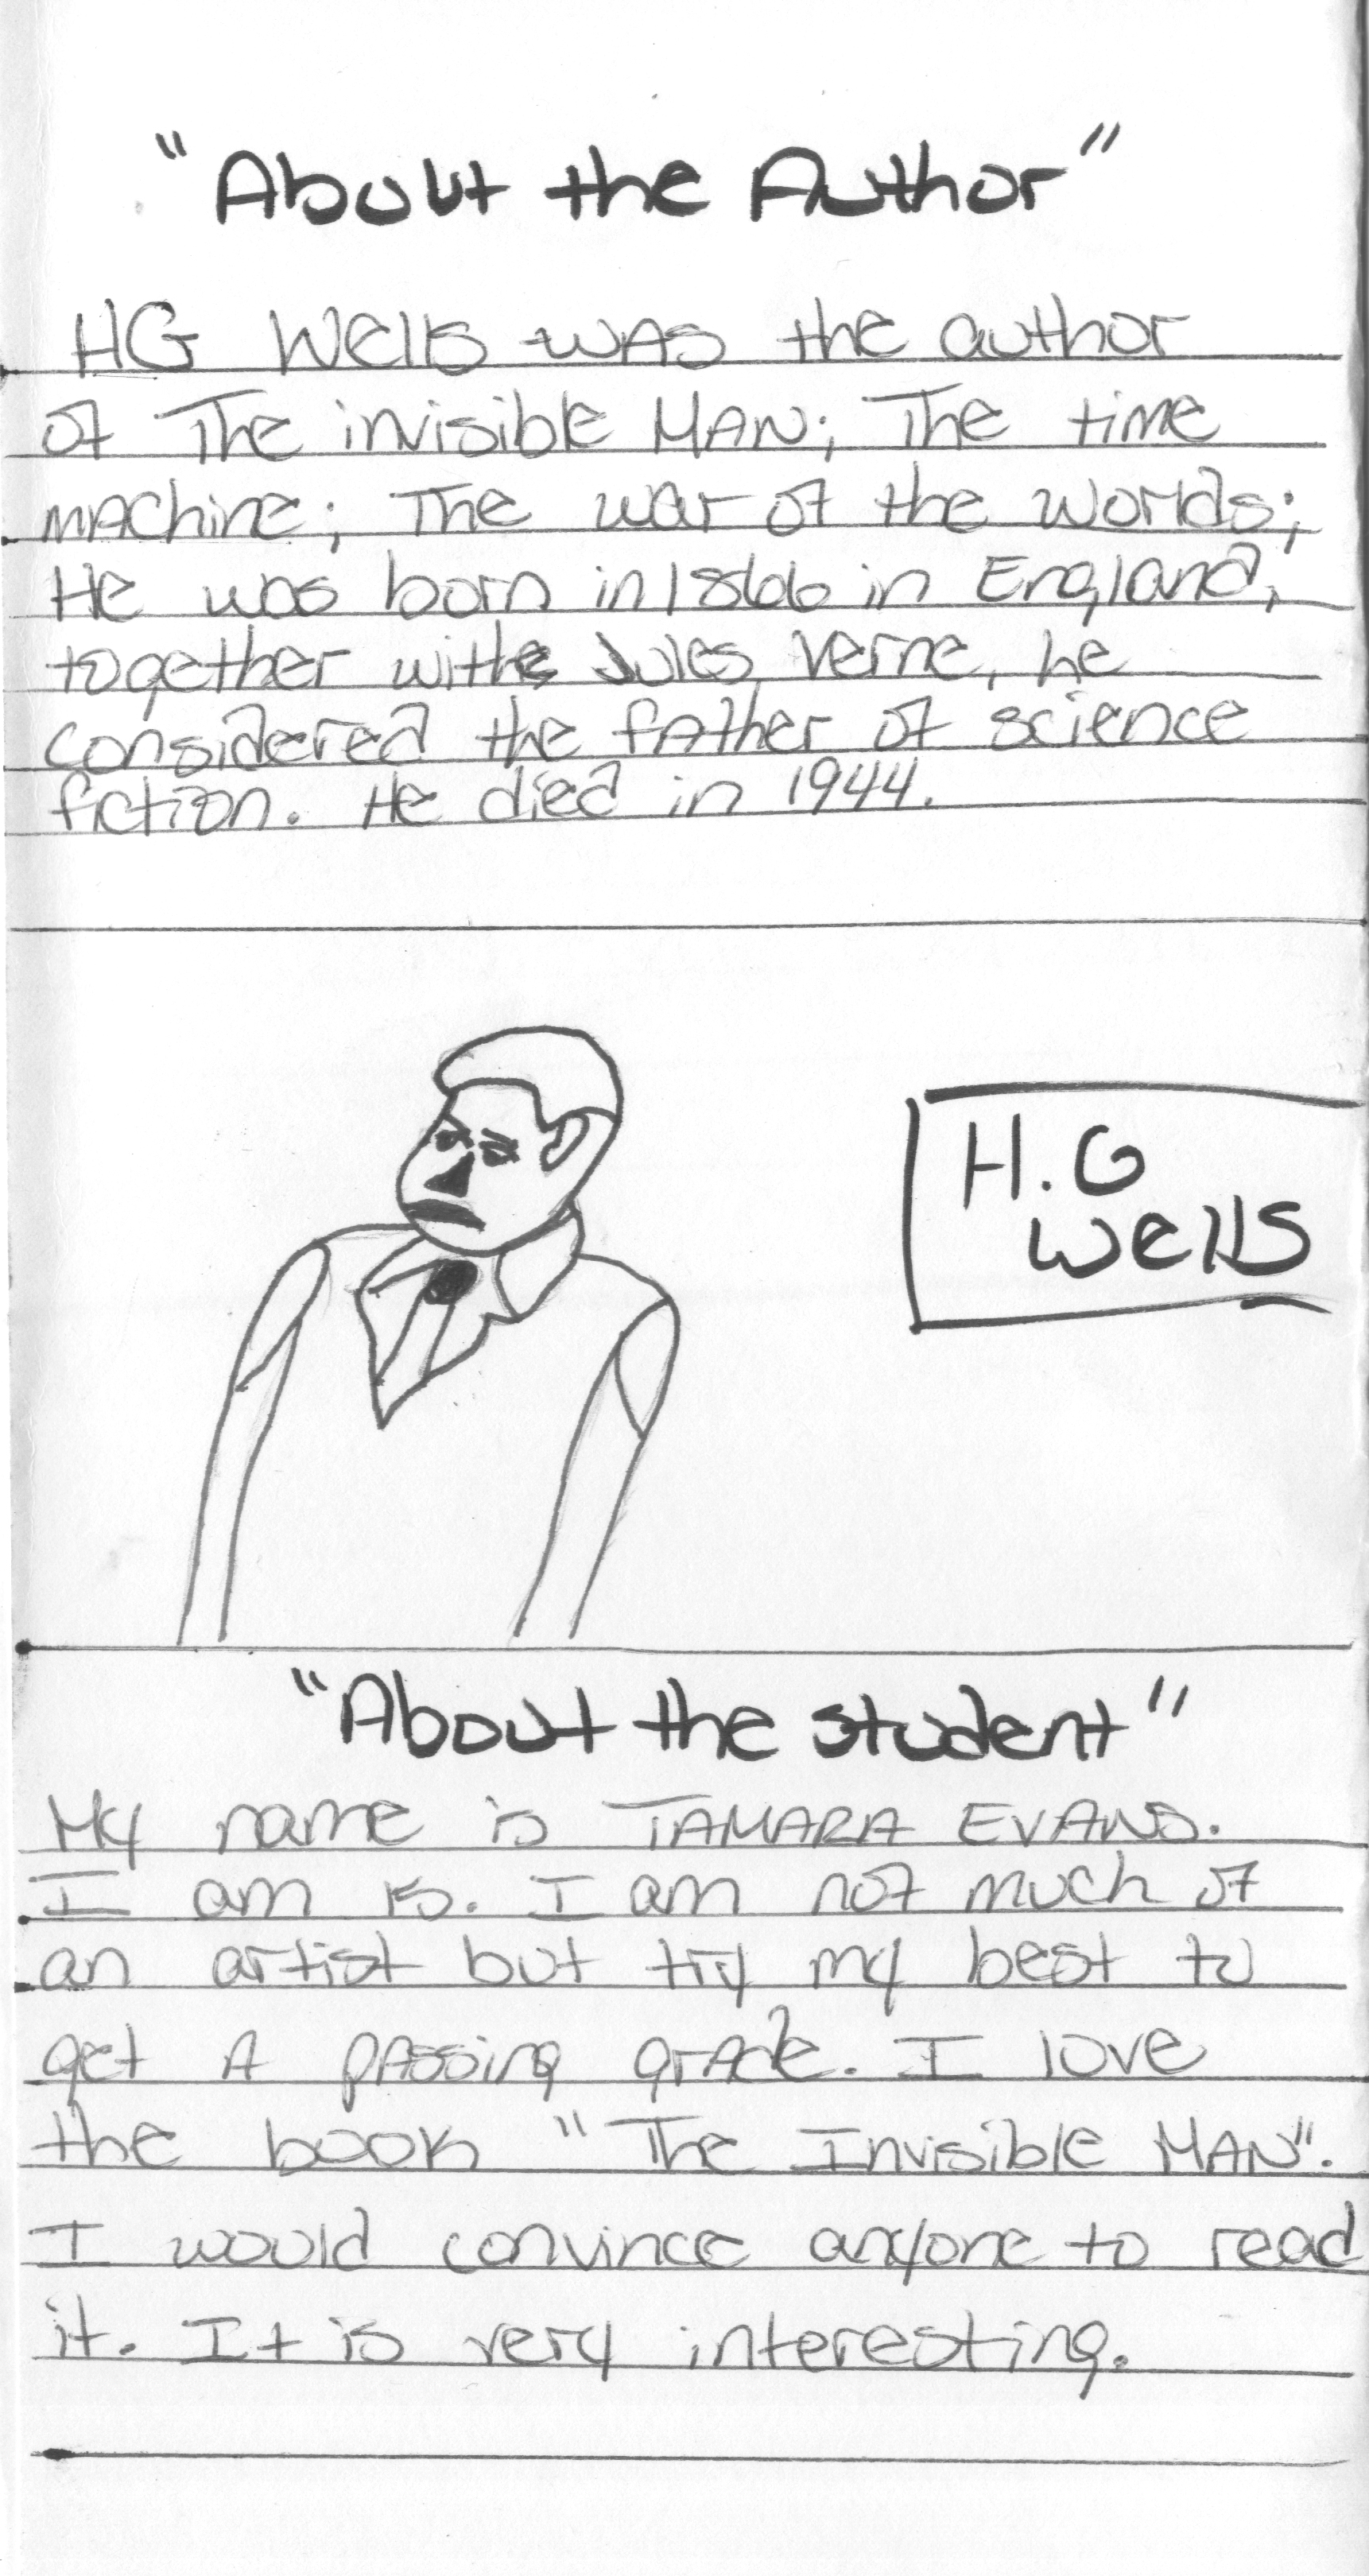 "About the Author"
HG Wells was the author
of The invisible MAN; The time
machine; The war of the worlds;
He was born in 1866 in England,
together with Jules Verne, he
considered the father of science
fiction. He died in 1944.
H.G
Wells
"About the student"
My name is TAMARA EVANS.
I am 15. I am not much of
an artist but try my best to
get A passing grade. I love
the book "The Invisible MAN".
I would convince anyone to read
it. It is very interesting.